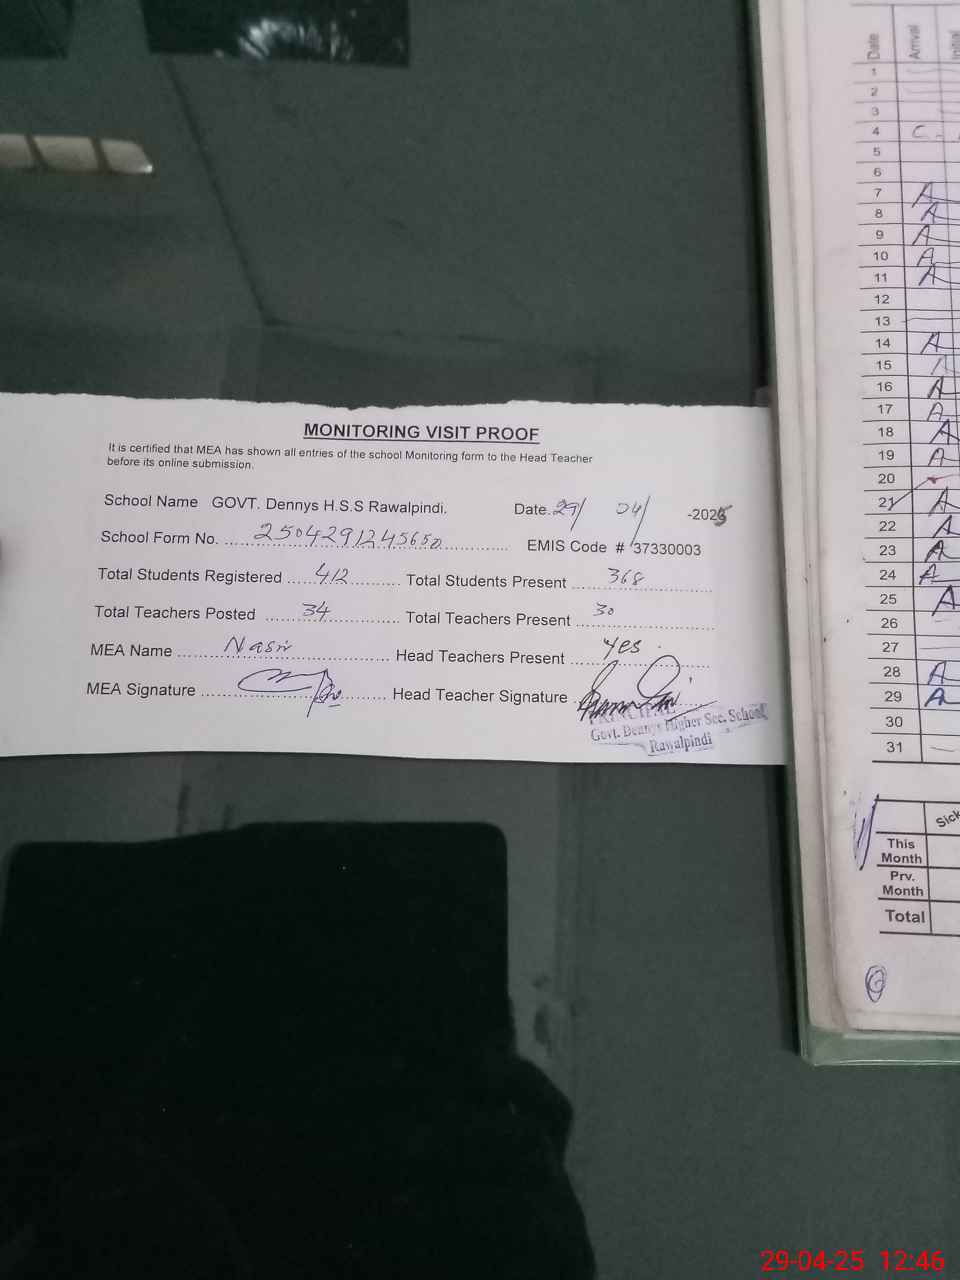 MONITORING VISIT PROOF
It is certified that MEA has shown all entries of the school Monitoring form to the Head Teacher
before its online submission.
School Name GOVT. Dennys H.S.S Rawalpindi. Date. 29/ 04/ -2025
School Form No. 2504291245650 EMIS Code # 37330003
Total Students Registered 412 Total Students Present 368
Total Teachers Posted 34 Total Teachers Present 30
MEA Name Nasir Head Teachers Present Yes.
MEA Signature Head Teacher Signature
PRINCIPAL
Govt. Dennys Higher Sec. School
Rawalpindi
Date Arrival Initial
1
2
3
4 C-
5
6
7 A
8 A
9 A
10 A
11 A
12
13
14 A
15 A
16 A
17 A
18 A
19 A
20
21 A
22 A
23 A
24 A
25 A
26
27
28 A
29 A
30
31
Sick
This Month
Prv. Month
Total
29-04-25 12:46